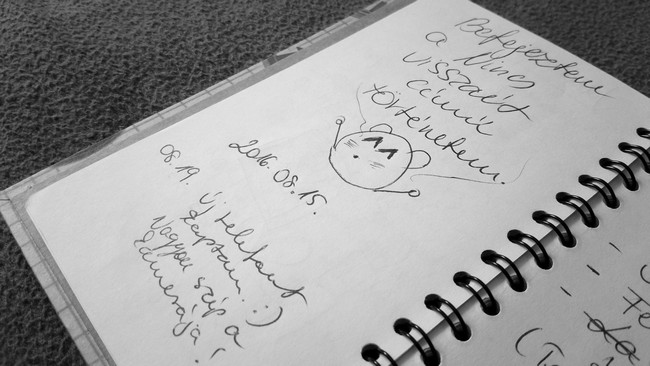 Befejeztem
a Nincs
visszaút
című
történetem.
2016.08.15.
08.19. Új telefont
kaptam. :)
Nagyon szép a
kamerája!